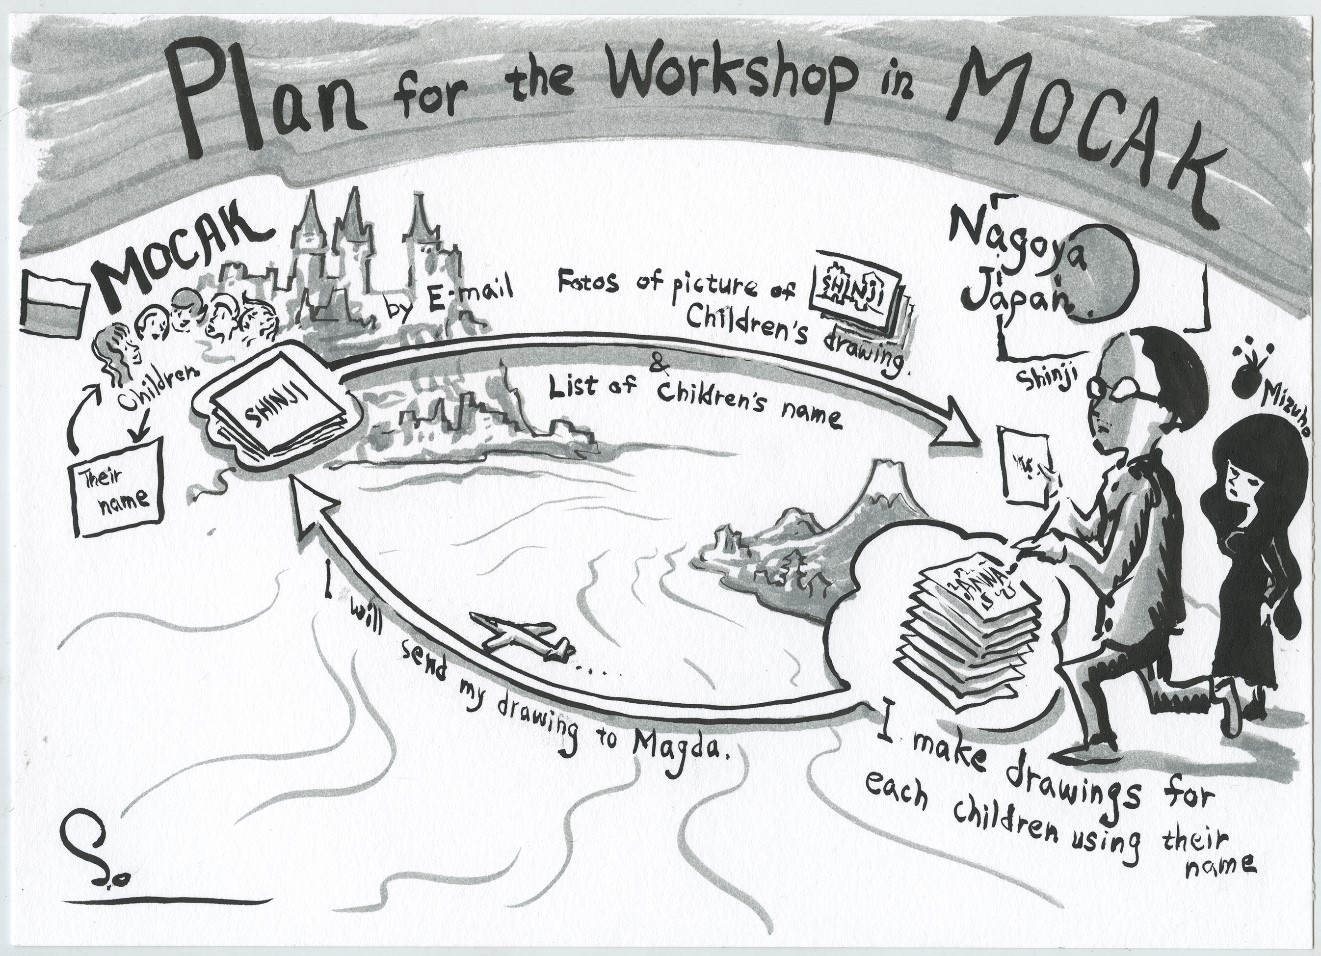 Plan for the Workshop in MOCAK
MOCAK
Children
Their
name
SHINJI
by E-mail
Fotos of picture of
Children's
drawing.
SHINJI
&
List of Children's name
Nagoya
Japan.
Shinji
Mizuho
ANNA
I make drawings for
each children using their
name
I will send my drawing to Magda.
S.o